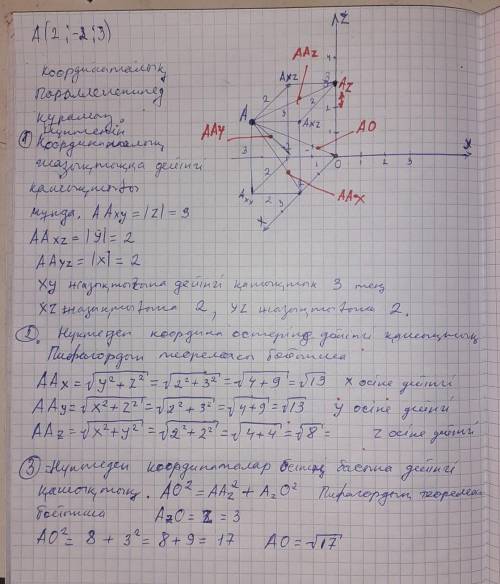 A(2;-2;3)
Координаталық
Параллелепипед
құрамыз.
① Нүктенің
Координаталық
жазықтыққа дейінгі
қашықтығы
мұнда, AAxy = |z| = 3
AAxz = |y| = 2
AAyz = |x| = 2
XY жазықтығына дейінгі қашықтық 3 тең
XZ жазықтығына 2, YZ жазықтығына 2.
② Нүктеден координа остеріне дейінгі қашықтық
Пифагордың теоремасы бойынша
AAx = √y²+z² = √2²+3² = √4+9 = √13 X осіне дейінгі
AAy = √x²+z² = √2²+3² = √4+9 = √13 Y осіне дейінгі
AAz = √x²+y² = √2²+2² = √4+4 = √8 = Z осіне дейінгі
③ Нүктеден координаталар басына дейінгі
қашықтық. AO² = AAz² + AzO² Пифагордың теоремасы
бойынша AzO = Z = 3
AO² = 8 + 3² = 8+9 = 17 AO = √17
Z
AAz
Axz
Az
A
AAy
AO
Ayz
O
X
1 2 3
AAx
Axy
X